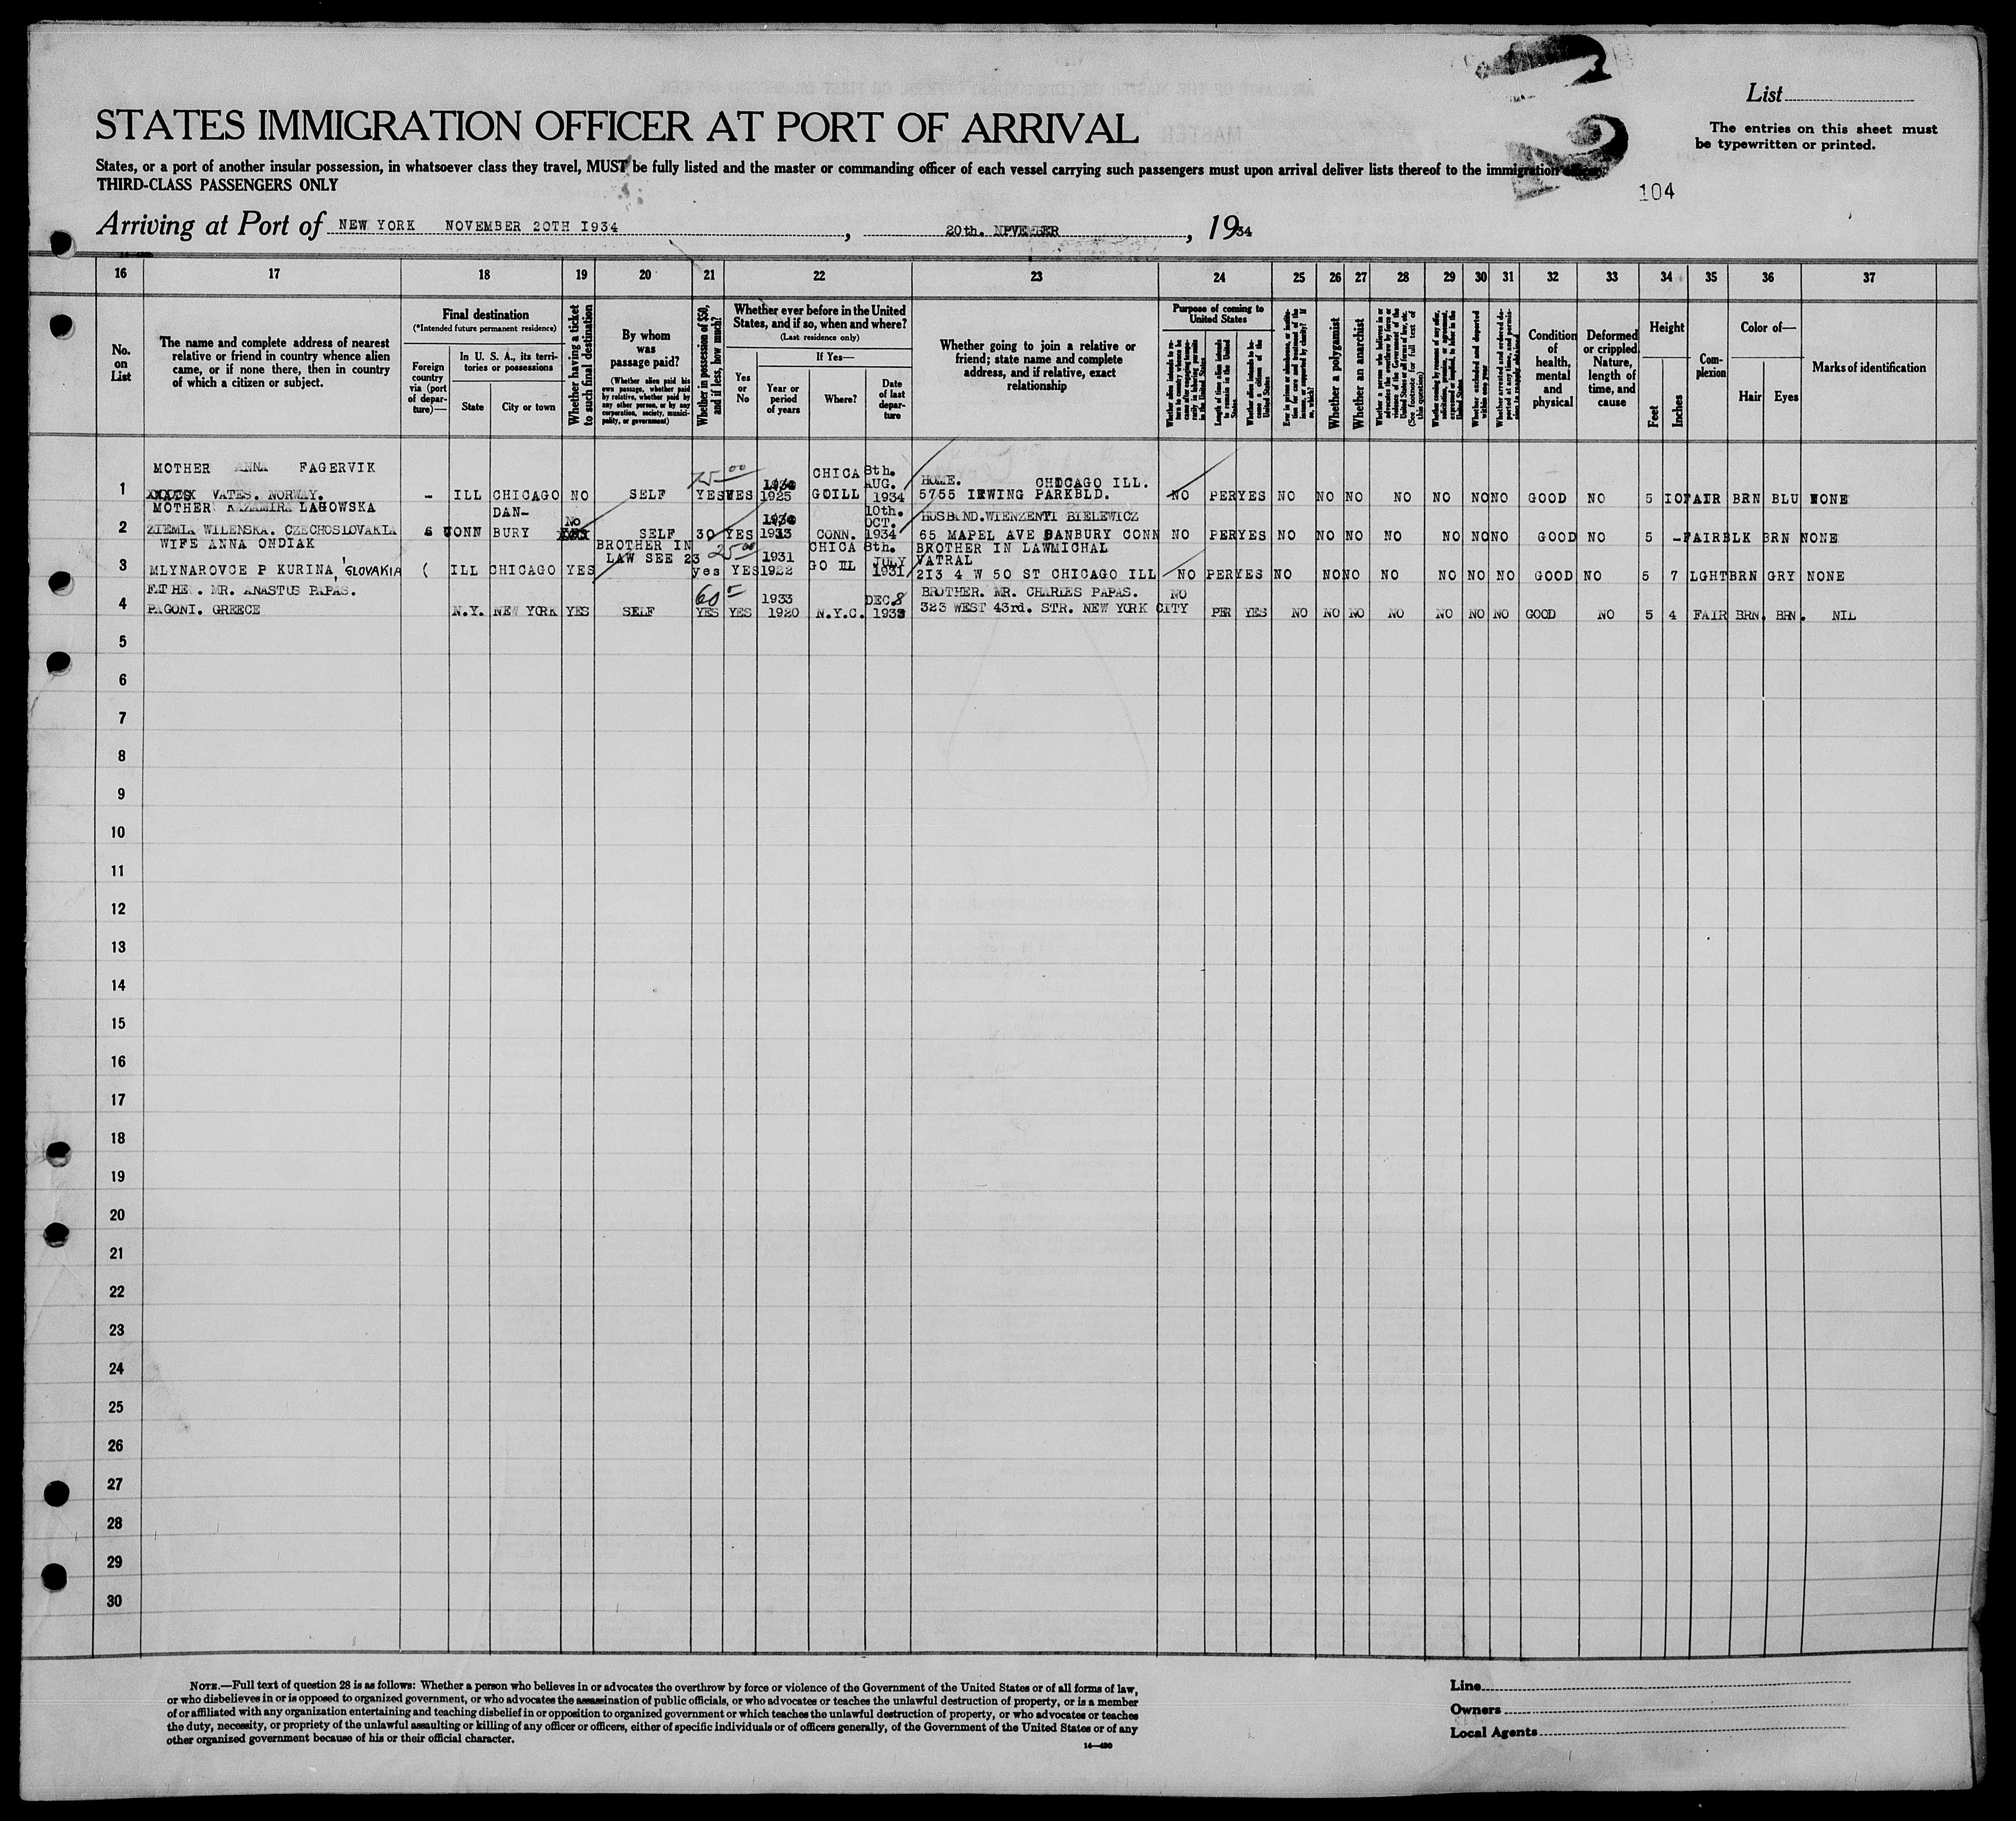 List
The entries on this sheet must
be typewritten or printed.
STATES IMMIGRATION OFFICER AT PORT OF ARRIVAL
States, or a port of another insular possession, in whatsoever class they travel, MUST be fully listed and the master or commanding officer of each vessel carrying such passengers must upon arrival deliver lists thereof to the immigration
THIRD-CLASS PASSENGERS ONLY
104
Arriving at Port of NEW YORK NOVEMBER 20TH 1934, 20th. NPVEMBER, 1934
16 17 18 19 20 21 22 23 24 25 26 27 28 29 30 31 32 33 34 35 36 37
No. on List
The name and complete address of nearest
relative or friend in country whence alien
came, or if none there, then in country
of which a citizen or subject.
Final destination
(*Intended future permanent residence)
Foreign country via (port of departure)—
In U. S. A., its territories or possessions
State
City or town
Whether having a ticket to such final destination
By whom was passage paid?
(Whether alien paid his own passage, whether paid by relative, whether paid by any other person, or by any corporation, society, municipality, or government)
Whether in possession of $50, and if less, how much?
Whether ever before in the United
States, and if so, when and where?
(Last residence only)
Yes or No
If Yes—
Year or period of years
Where?
Date of last departure
Whether going to join a relative or
friend; state name and complete
address, and if relative, exact
relationship
Purpose of coming to
United States
Length of time alien intends to remain in the United States
Whether alien intends to become a citizen of the United States
Whether a polygamist
Whether an anarchist
Condition of health, mental and physical
Deformed or crippled. Nature, length of time, and cause
Height
Feet
Inches
Complexion
Color of—
Hair
Eyes
Marks of identification
MOTHER ANNA FAGERVIK
1 VATES. NORWAY. – ILL CHICAGO NO SELF 75 00 YES YES 1934 1925 CHICA GOILL 8th. AUG. 1934 HOME. CHICAGO ILL. 5755 IRWING PARKBLD. NO PER YES NO NO NO NO NO NO NO GOOD NO 5 10 FAIR BRN BLU NONE
MOTHER KAZAMIRA LAGOWSKA
2 ZIEMIA WILENSKA. CZECHOSLOVAKIA S CONN DAN- BURY No SELF 30 YES 1934 1913 CONN. 10th. OCT. 1934 HUSBAND.WIENZENTI BIELEWICZ 65 MAPEL AVE DANBURY CONN NO PER YES NO NO NO NO NO NO NO GOOD NO 5 – FAIR BLK BRN NONE
WIFE ANNA ONDIAK
3 MLYNAROVCE P KURINA, SLOVAKIA ( ILL CHICAGO YES BROTHER IN LAW SEE 23 25 00 yes YES 1931 1922 CHICA GO ILL 8th. JULY 1931 BROTHER IN LAWMICHAL VATRAL 213 4 W 50 ST CHICAGO ILL NO PER YES NO NO NO NO NO NO NO GOOD NO 5 7 LGHT BRN GRY NONE
FATHE . MR. ANASTUS PAPAS.
4 PAGONI. GREECE N.Y. NEW YORK YES SELF 60 YES YES 1933 1920 N.Y.C. DEC 8 1933 BROTHER. MR. CHARLES PAPAS. 323 WEST 43rd. STR. NEW YORK CITY NO PER YES NO NO NO NO NO NO NO GOOD NO 5 4 FAIR BRN. BRN. NIL
5
6
7
8
9
10
11
12
13
14
15
16
17
18
19
20
21
22
23
24
25
26
27
28
29
30
NOTE.—Full text of question 28 is as follows: Whether a person who believes in or advocates the overthrow by force or violence of the Government of the United States or of all forms of law,
or who disbelieves in or is opposed to organized government, or who advocates the assassination of public officials, or who advocates or teaches the unlawful destruction of property, or is a member
of or affiliated with any organization entertaining and teaching disbelief in or opposition to organized government or which teaches the unlawful destruction of property, or who advocates or teaches
the duty, necessity, or propriety of the unlawful assaulting or killing of any officer or officers, either of specific individuals or of officers generally, of the Government of the United States or of any
other organized government because of his or their official character.
14—490
Line
Owners
Local Agents